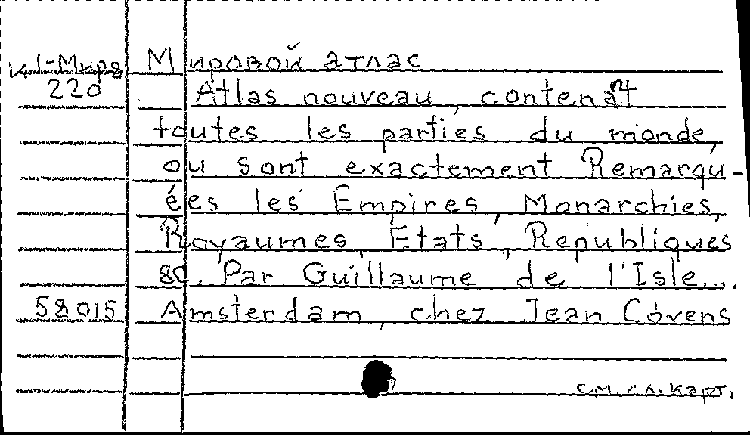 к1-Миря Мировой атлас
220 Atlas nouveau, contenãt
toutes les parties du monde,
ou sont exactement Remarqu-
ées les Empires, Monarchies,
Royaumes, Etats, Republiques
&c. Par Guillaume de l'Isle...
58015 Amsterdam, chez Jean Cóvens
См. сл. карт.